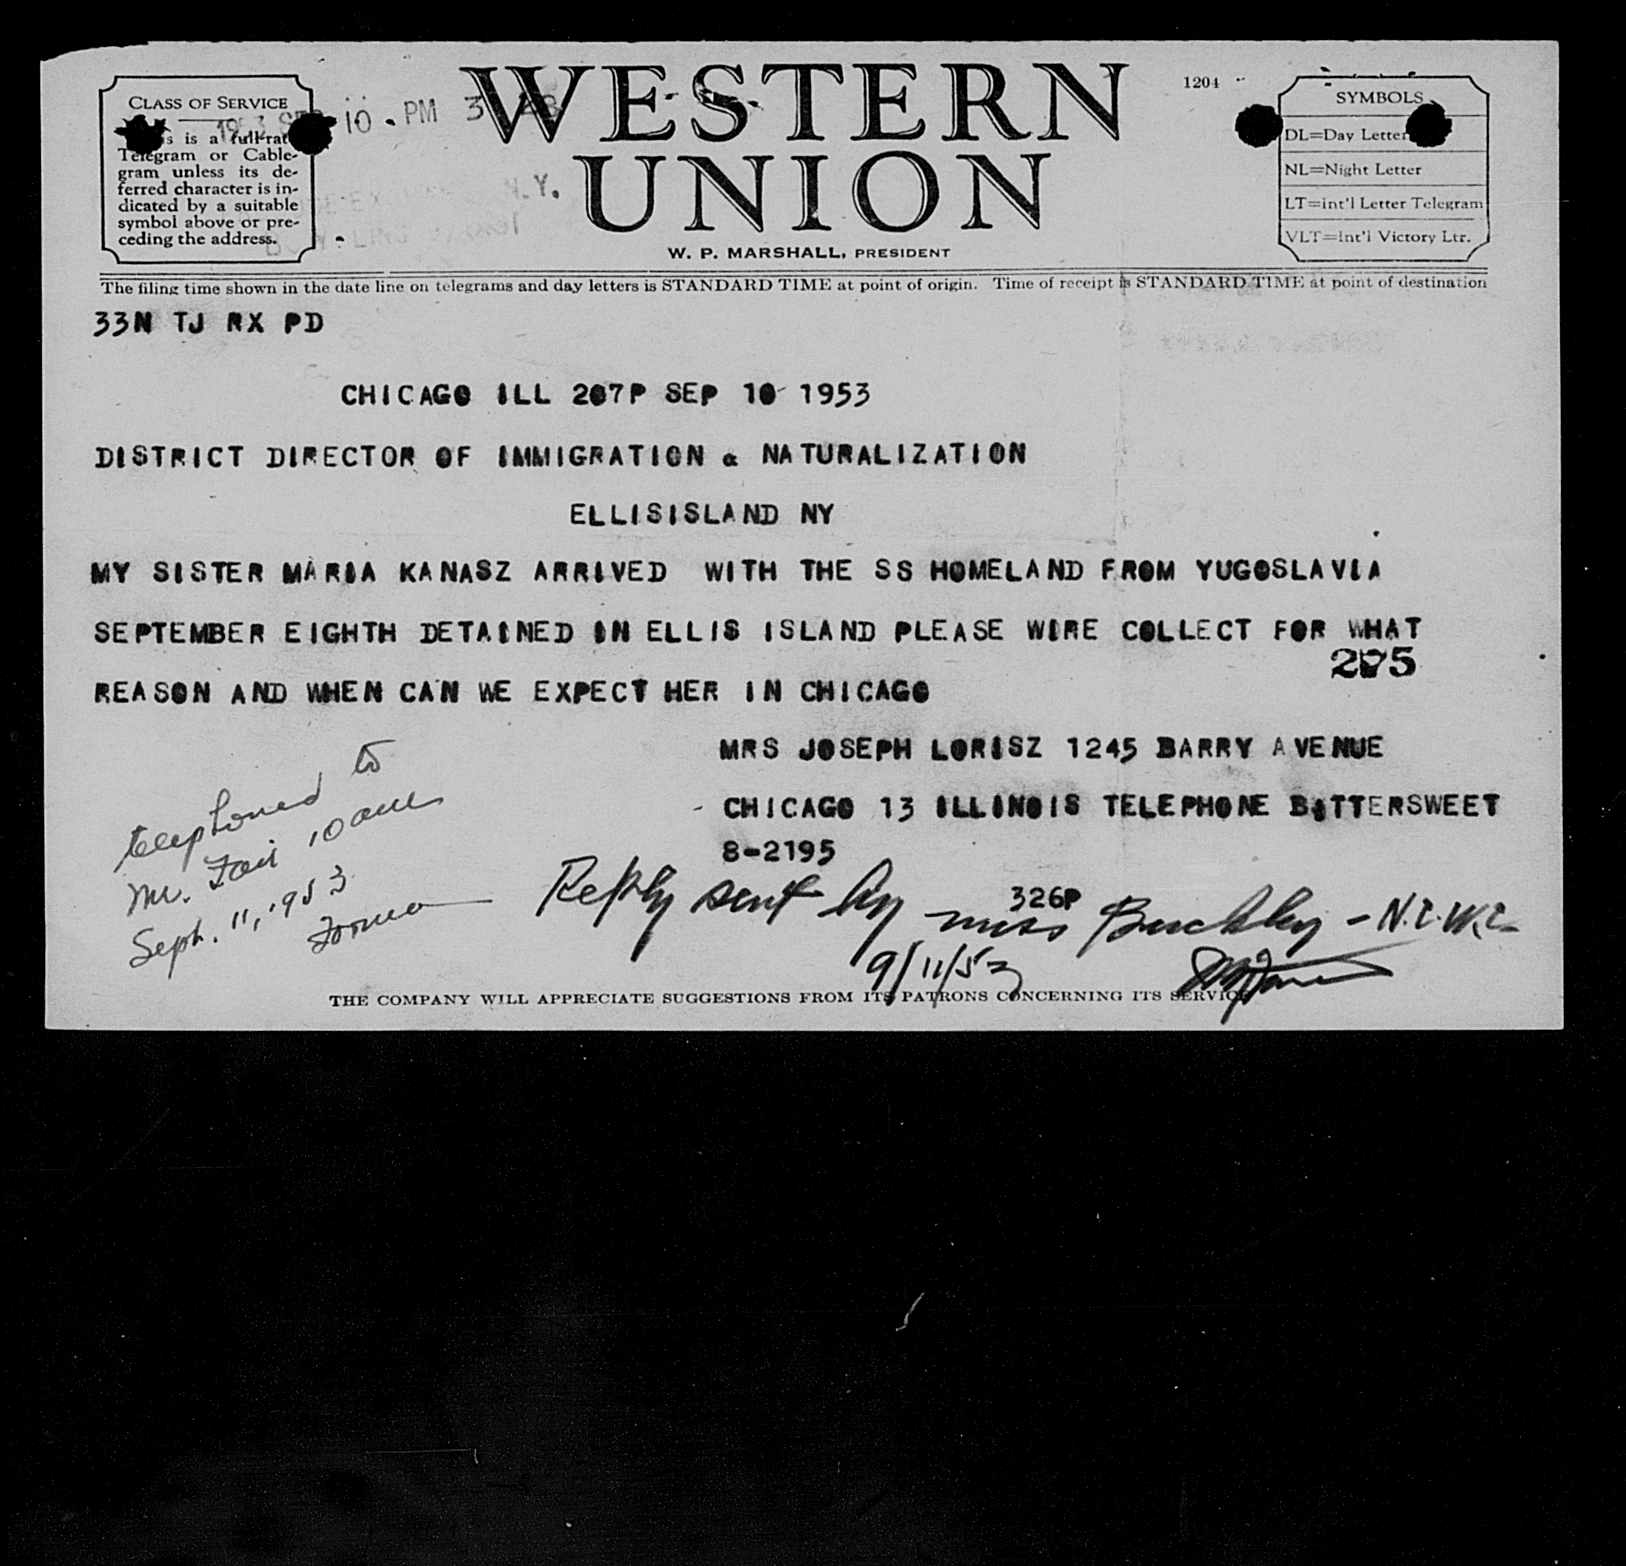 WESTERN
UNION
1204
CLASS OF SERVICE
is a full-rate
Telegram or Cable-
gram unless its de-
ferred character is in-
dicated by a suitable
symbol above or pre-
ceding the address.
10 . PM 3
N.Y.
SYMBOLS
DL=Day Letter
NL=Night Letter
LT=int'l Letter Telegram
VLT=Int'l Victory Ltr.
W. P. MARSHALL, PRESIDENT
The filing time shown in the date line on telegrams and day letters is STANDARD TIME at point of origin. Time of receipt is STANDARD TIME at point of destination
33N TJ RX PD
CHICAGO ILL 207P SEP 10 1953
DISTRICT DIRECTOR OF IMMIGRATION & NATURALIZATION
ELLISISLAND NY
MY SISTER MARIA KANASZ ARRIVED WITH THE SS HOMELAND FROM YUGOSLAVIA
SEPTEMBER EIGHTH DETAINED IN ELLIS ISLAND PLEASE WIRE COLLECT FOR WHAT
REASON AND WHEN CAN WE EXPECT HER IN CHICAGO
MRS JOSEPH LORISZ 1245 BARRY AVENUE
CHICAGO 13 ILLINOIS TELEPHONE BITTERSWEET
8-2195
326P
telephoned to
Mr. 10 am
Sept. 11, 1953
Reply sent by miss Buckley - N.C.W.C.
9/11/53
THE COMPANY WILL APPRECIATE SUGGESTIONS FROM ITS PATRONS CONCERNING ITS SERVICE